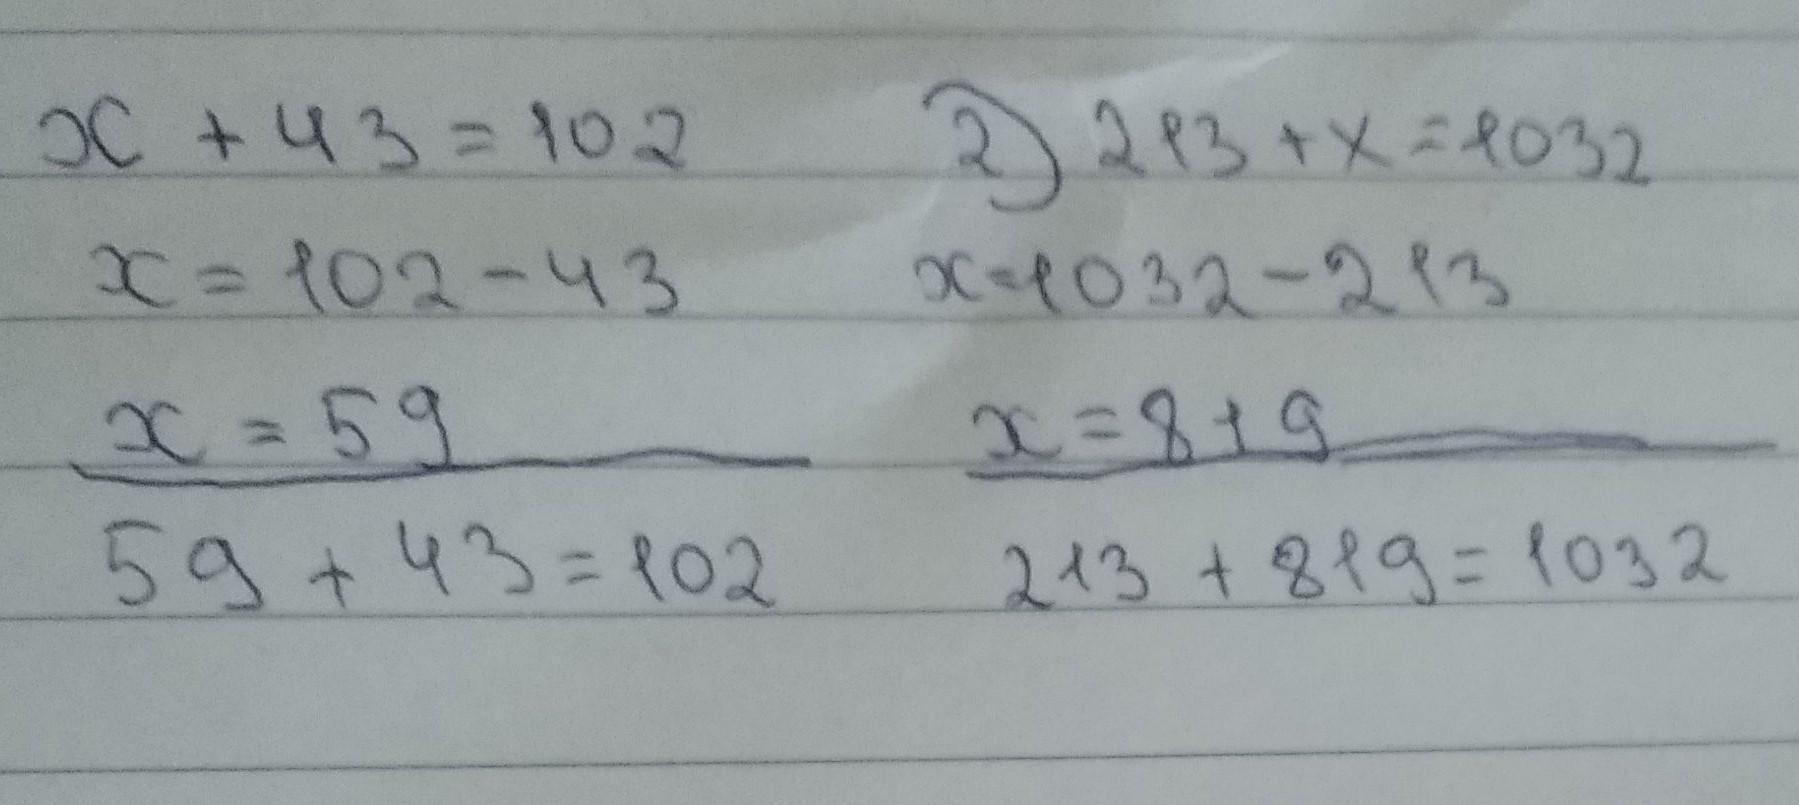 x + 43 = 102
x = 102 - 43
x = 59
59 + 43 = 102
2) 213 + x = 1032
x = 1032 - 213
x = 819
213 + 819 = 1032